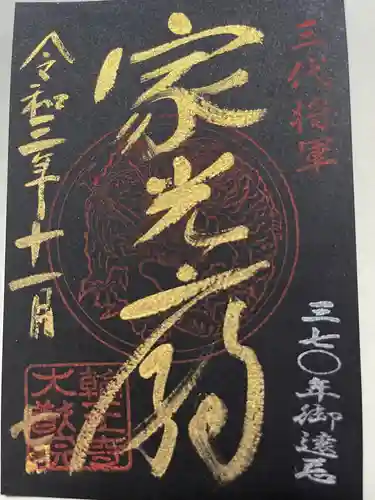 三代将軍
家光廟
令和三年十一月七日
三七〇年御遠忌
輪王寺
大猷院